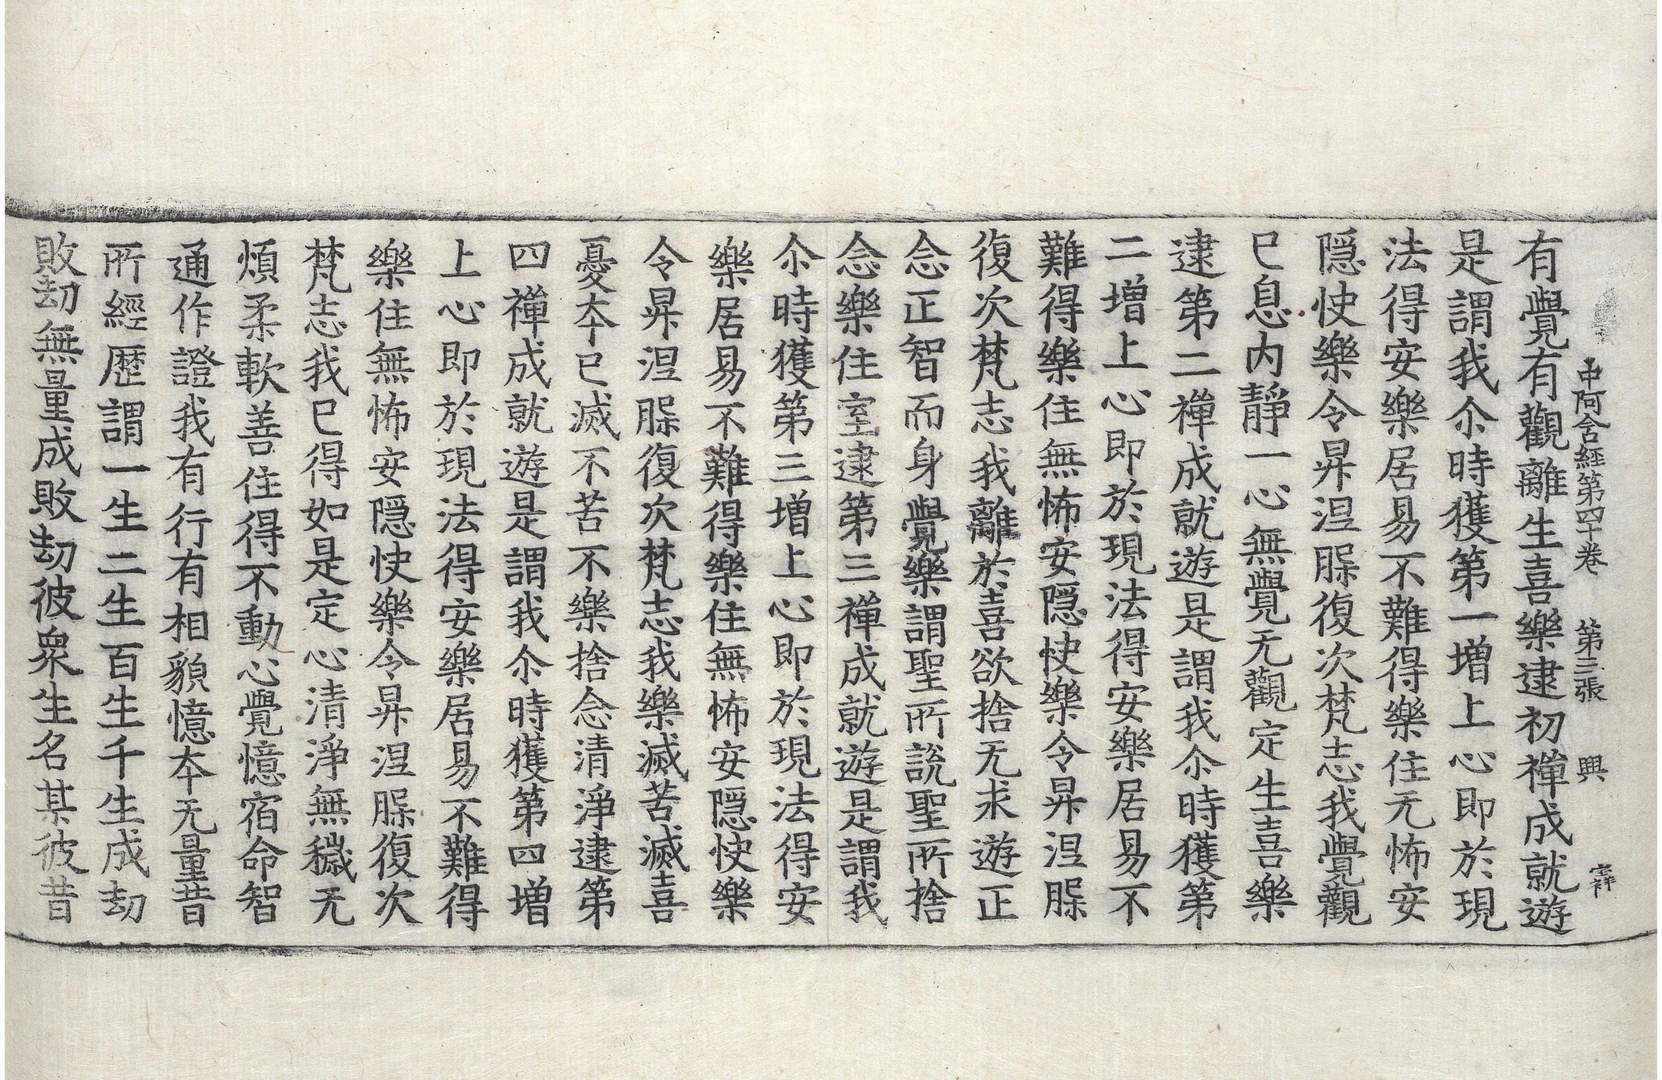 中阿含經第四十卷 第三張 興
有覺有觀離生喜樂逮初禪成就遊
是謂我尒時獲第一增上心即於現
法得安樂居易不難得樂住无怖安
隠快樂令昇涅槃復次梵志我覺觀
已息內靜一心無覺无觀定生喜樂
逮第二禪成就遊是謂我尒時獲第
二增上心即於現法得安樂居易不
難得樂住無怖安隠快樂令昇涅槃
復次梵志我離於喜欲捨无求遊正
念正智而身覺樂謂聖所說聖所捨
念樂住室逮第三禪成就遊是謂我
尒時獲第三增上心即於現法得安
樂居易不難得樂住無怖安隠快樂
令昇涅槃復次梵志我樂滅苦滅喜
憂夲已滅不苦不樂捨念清淨逮第
四禪成就遊是謂我尒時獲第四增
上心即於現法得安樂居易不難得
樂住無怖安隠快樂令昇涅槃復次
梵志我已得如是定心清淨無穢无
煩柔軟善住得不動心覺憶宿命智
通作證我有行有相貌憶夲无量昔
所經歷謂一生二生百生千生成劫
敗劫無量成敗劫彼衆生名某彼昔